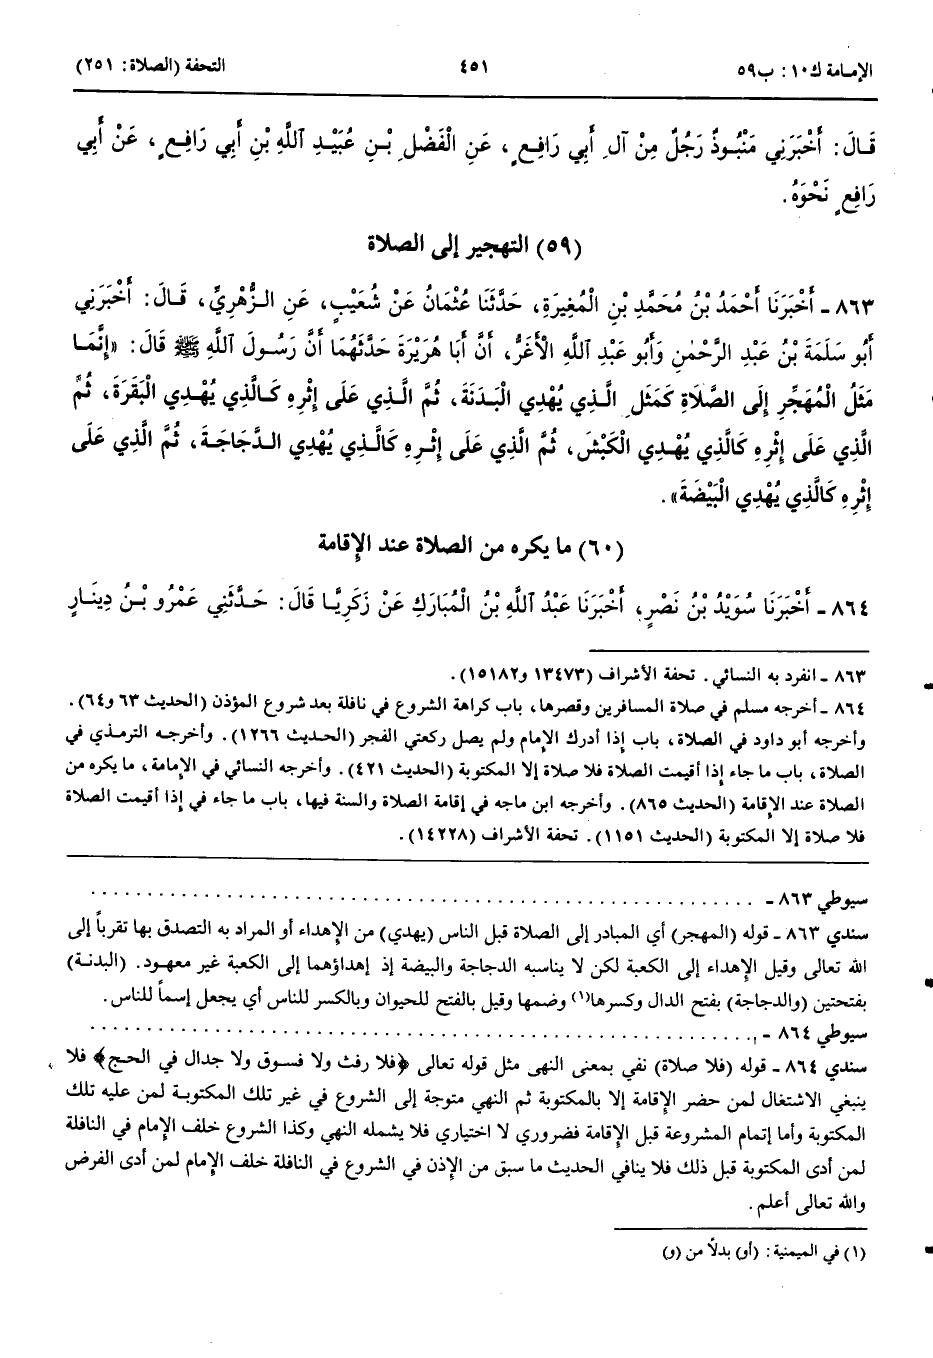 الإمامة ك١٠: ب٥٩
٤٥١
التحفة (الصلاة: ٢٥١)
قَالَ: أَخْبَرَنِي مَنْبُوذٌ رَجُلٌ مِنْ آلِ أَبِي رَافِعٍ، عَنِ الْفَضْلِ بْنِ عُبَيْدِ اللَّهِ بْنِ أَبِي رَافِعٍ، عَنْ أَبِي
رَافِعٍ نَحْوَهُ.
(٥٩) التهجير إلى الصلاة
٨٦٣ ـ أَخْبَرَنَا أَحْمَدُ بْنُ مُحَمَّدِ بْنِ الْمُغِيرَةِ، حَدَّثَنَا عُثْمَانُ عَنْ شُعَيْبٍ، عَنِ الزُّهْرِيِّ، قَالَ: أَخْبَرَنِي
أَبُو سَلَمَةَ بْنُ عَبْدِ الرَّحْمٰنِ وَأَبُو عَبْدِ اللَّهِ الأَغَرُّ، أَنَّ أَبَا هُرَيْرَةَ حَدَّثَهُمَا أَنَّ رَسُولَ اللَّهِ ﷺ قَالَ: «إِنَّمَا
مَثَلُ الْمُهَجِّرِ إِلَى الصَّلَاةِ كَمَثَلِ الَّذِي يُهْدِي الْبَدَنَةَ، ثُمَّ الَّذِي عَلَى إِثْرِهِ كَالَّذِي يُهْدِي الْبَقَرَةَ، ثُمَّ
الَّذِي عَلَى إِثْرِهِ كَالَّذِي يُهْدِي الْكَبْشَ، ثُمَّ الَّذِي عَلَى إِثْرِهِ كَالَّذِي يُهْدِي الدَّجَاجَةَ، ثُمَّ الَّذِي عَلَى
إِثْرِهِ كَالَّذِي يُهْدِي الْبَيْضَةَ».
(٦٠) ما يكره من الصلاة عند الإقامة
٨٦٤ ـ أَخْبَرَنَا سُوَيْدُ بْنُ نَصْرٍ، أَخْبَرَنَا عَبْدُ اللَّهِ بْنُ الْمُبَارَكِ عَنْ زَكَرِيَّا قَالَ: حَدَّثَنِي عَمْرُو بْنُ دِينَارٍ
٨٦٣ ـ انفرد به النسائي. تحفة الأشراف (١٣٤٧٣ و١٥١٨٢).
٨٦٤ ـ أخرجه مسلم في صلاة المسافرين وقصرها، باب كراهة الشروع في نافلة بعد شروع المؤذن (الحديث ٦٣ و٦٤).
وأخرجه أبو داود في الصلاة، باب إذا أدرك الإمام ولم يصل ركعتي الفجر (الحديث ١٢٦٦). وأخرجه الترمذي في
الصلاة، باب ما جاء إذا أقيمت الصلاة فلا صلاة إلا المكتوبة (الحديث ٤٢١). وأخرجه النسائي في الإمامة، ما يكره من
الصلاة عند الإقامة (الحديث ٨٦٥). وأخرجه ابن ماجه في إقامة الصلاة والسنة فيها، باب ما جاء في إذا أقيمت الصلاة
فلا صلاة إلا المكتوبة (الحديث ١١٥١). تحفة الأشراف (١٤٢٢٨).
سيوطي ٨٦٣ ـ . . . . . . . . . . . . . . . . . . . . . . . . . . . . . . . . . . . . . . . . . . . . . . . . . . . . . .
سندي ٨٦٣ ـ قوله (المهجر) أي المبادر إلى الصلاة قبل الناس (يهدي) من الإهداء أو المراد به التصدق بها تقرباً إلى
الله تعالى وقيل الإهداء إلى الكعبة لكن لا يناسبه الدجاجة والبيضة إذ إهداؤهما إلى الكعبة غير معهود. (البدنة)
بفتحتين (والدجاجة) بفتح الدال وكسرها(١) وضمها وقيل بالفتح للحيوان وبالكسر للناس أي يجعل إسماً للناس.
سيوطي ٨٦٤ ـ . . . . . . . . . . . . . . . . . . . . . . . . . . . . . . . . . . . . . . . . . . . . . . . . . . . . . .
سندي ٨٦٤ ـ قوله (فلا صلاة) نفي بمعنى النهى مثل قوله تعالى ﴿فلا رفث ولا فسوق ولا جدال في الحج﴾ فلا
ينبغي الاشتغال لمن حضر الإقامة إلا بالمكتوبة ثم النهي متوجة إلى الشروع في غير تلك المكتوبة لمن عليه تلك
المكتوبة وأما إتمام المشروعة قبل الإقامة فضروري لا اختياري فلا يشمله النهي وكذا الشروع خلف الإمام في النافلة
لمن أدى المكتوبة قبل ذلك فلا ينافي الحديث ما سبق من الإذن في الشروع في النافلة خلف الإمام لمن أدى الفرض
والله تعالى أعلم.
(١) في الميمنية: (أو) بدلاً من (و)